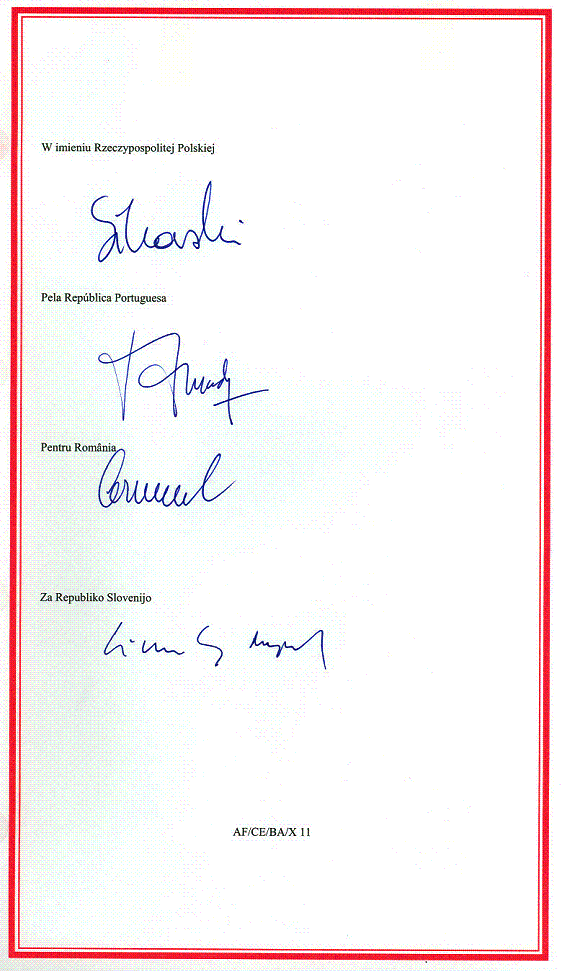 W imieniu Rzeczypospolitej Polskiej
Sikorski
Pela República Portuguesa
Pentru România
Za Republiko Slovenijo
AF/CE/BA/X 11